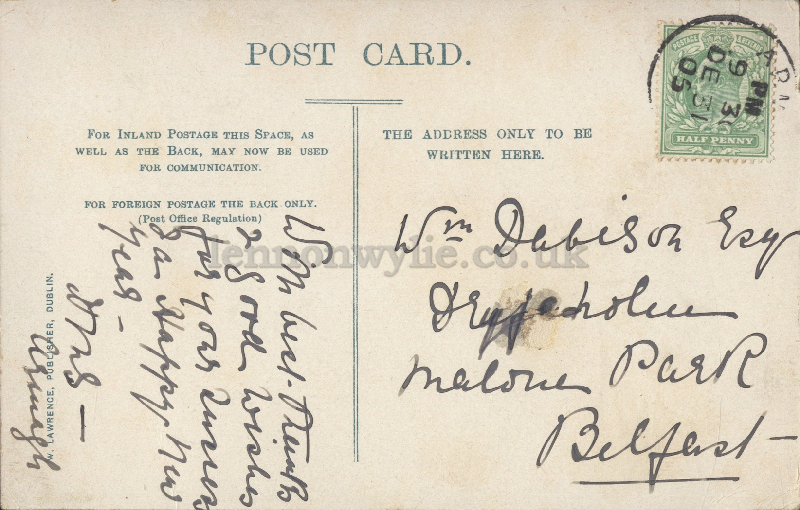 POST CARD.
FOR INLAND POSTAGE THIS SPACE, AS
WELL AS THE BACK, MAY NOW BE USED
FOR COMMUNICATION.
FOR FOREIGN POSTAGE THE BACK ONLY.
(Post Office Regulation)
THE ADDRESS ONLY TO BE
WRITTEN HERE.
POSTAGE
HALF PENNY
ARM
9 30 PM
DE 31
05
Wm Davison Esq
Malone Park
Belfast
With best thanks
& good wishes
for your
& a Happy New
Year –
Armagh
W. LAWRENCE, PUBLISHER, DUBLIN.
lennonwylie.co.uk